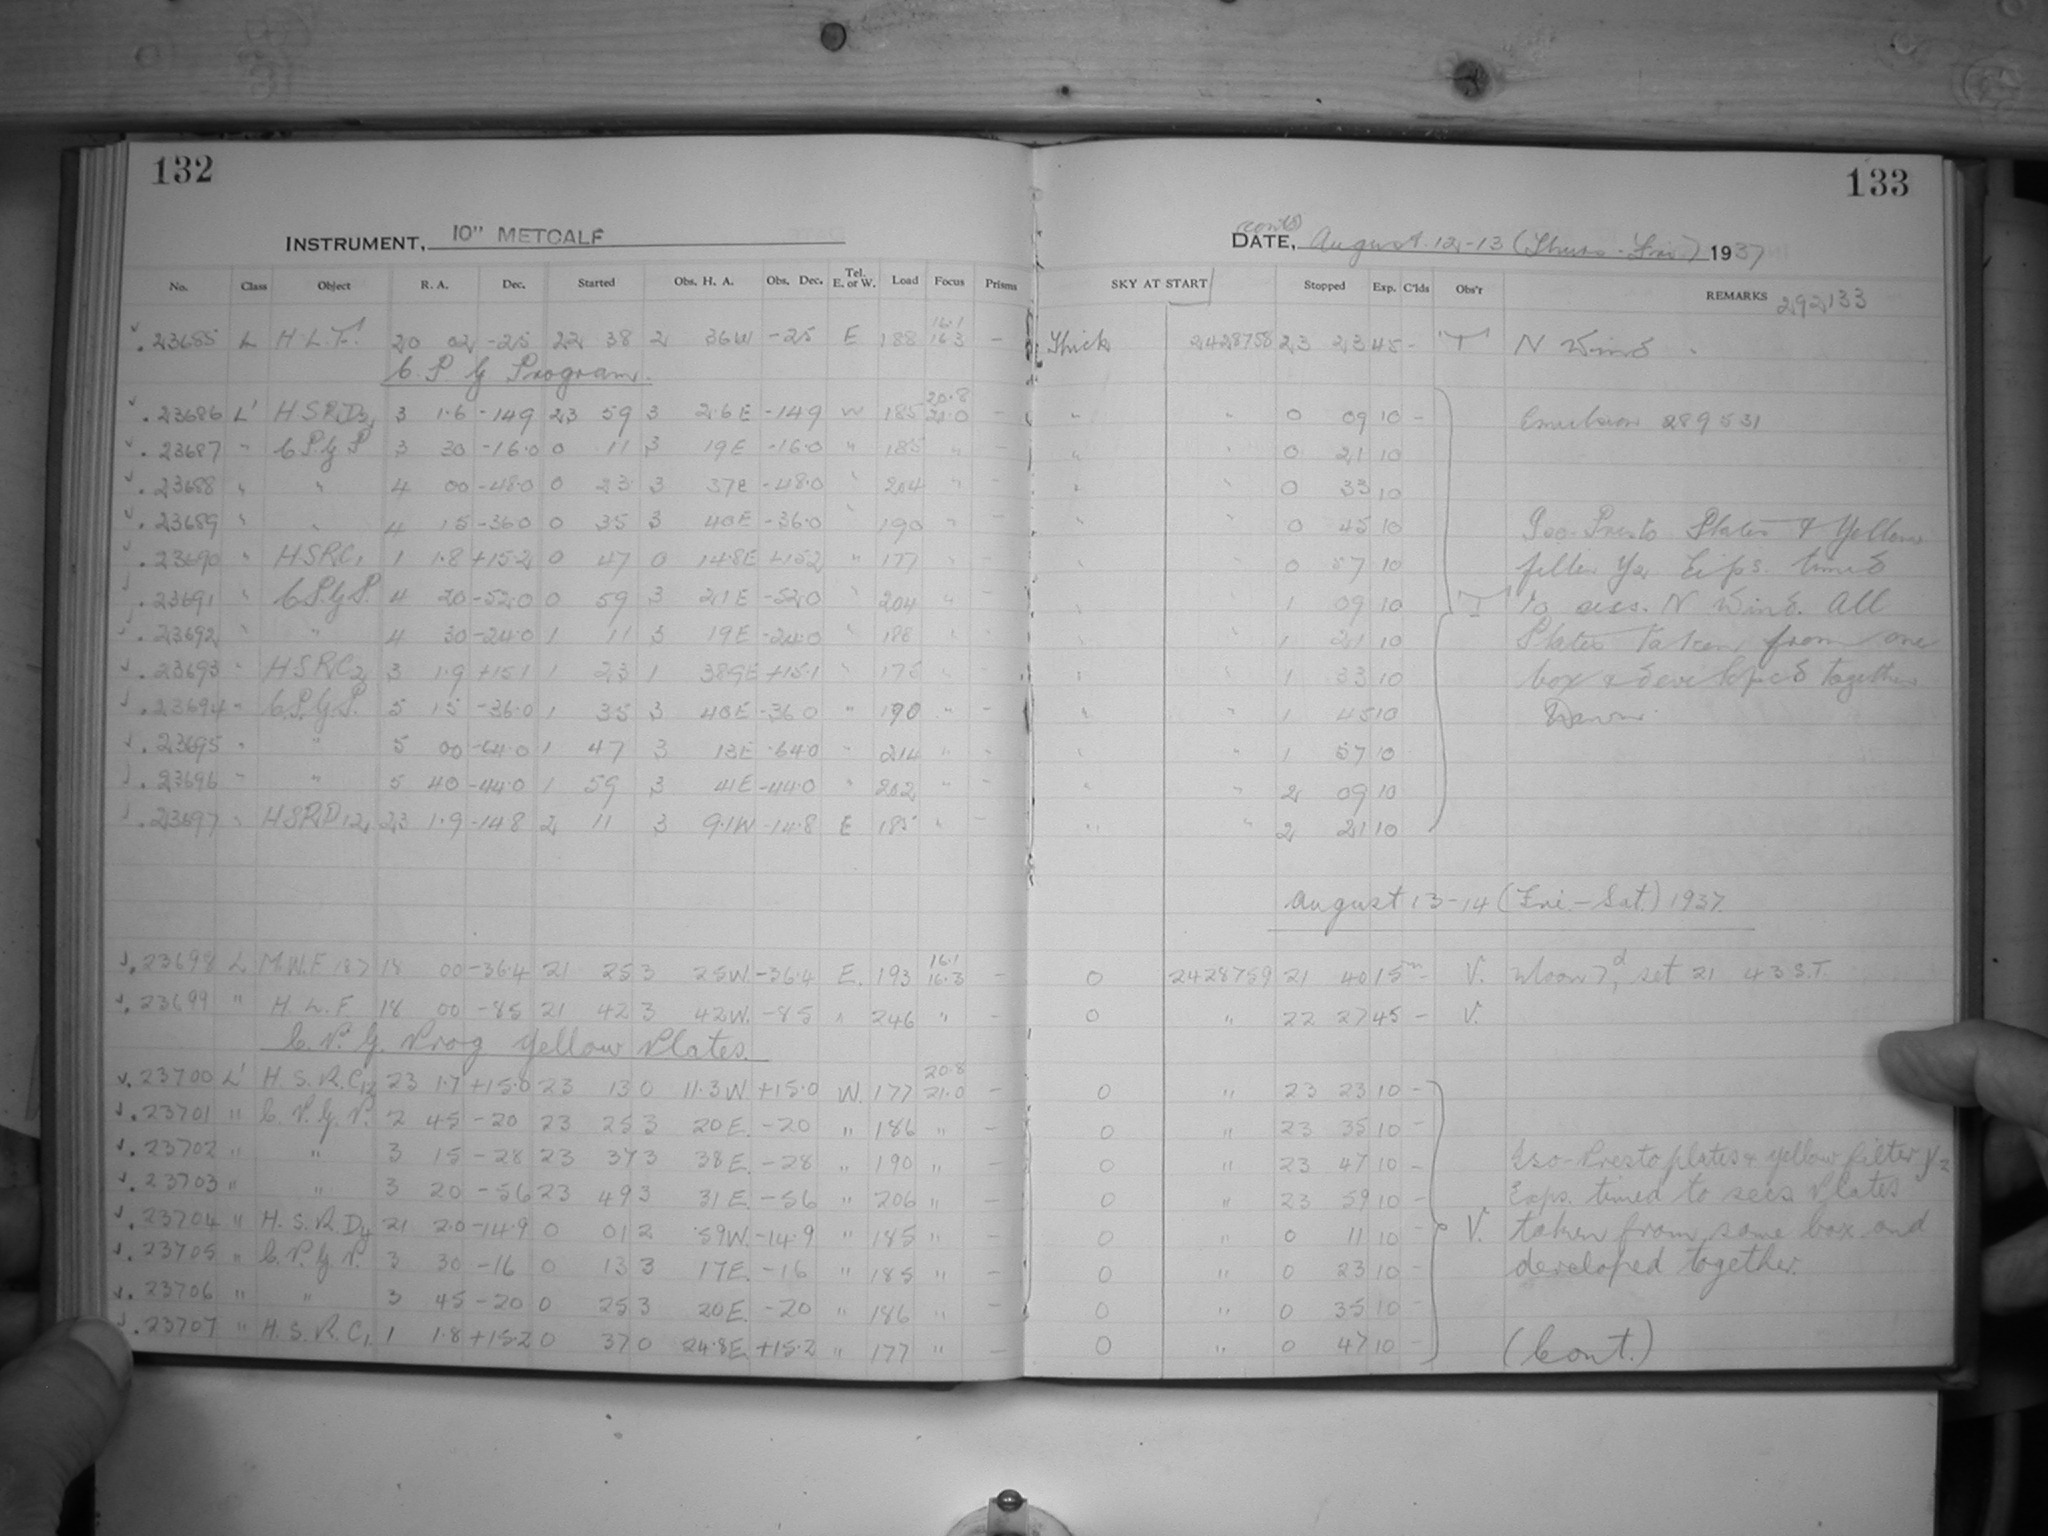 132
133
INSTRUMENT, 10" METCALF
(cont'd)
DATE, August 12-13 (Thurs - Fri) 1937
No. Class Object R. A. Dec. Started Obs. H. A. Obs. Dec. Tel. E. or W. Load Focus Prisms SKY AT START Stopped Exp. C'lds Obs'r REMARKS 292133
23685 L H.L.F. 20 02 -25 22 38 2 36W -25 E 188 16.1 16.3 - Thick 2428758 23 23 45 - T N Wind
C. P G Program.
23686 L' H S R.D3 3 1.6 -149 23 59 3 2.6E -149 W 185 20.8 21.0 - " " 0 09 10 - Emulsion 289531
23687 " C P.G P. 3 30 -16.0 0 11 3 19E -16.0 " 185 " - " " 0 21 10
23688 " " 4 00 -48.0 0 23 3 37E -48.0 " 204 " - " " 0 33 10
23689 " " 4 15 -36.0 0 35 3 40E -36.0 " 190 " - " " 0 45 10 Iso-Presto Plates & Yellow
23690 " H.S.R.C1 1 1.8 +15.2 0 47 0 14.8E +15.2 " 177 " - " " 0 57 10 filter Y2 Exps. timed
23691 " C.P.G.P. 4 20 -52.0 0 59 3 21E -52.0 " 204 " - " " 1 09 10 T to secs. N Wind. All
23692 " " 4 30 -24.0 1 11 3 19E -24.0 " 188 " - " " 1 21 10 Plates taken from one
23693 " H.S.R.C2 3 1.9 +15.1 1 23 1 38.9E +15.1 " 175 " - " " 1 33 10 box & developed together
23694 " C.P.G.P. 5 15 -36.0 1 35 3 40E -36.0 " 190 " - " " 1 45 10 Dawn.
23695 " " 5 00 -64.0 1 47 3 13E -64.0 " 214 " - " " 1 57 10
23696 " " 5 40 -44.0 1 59 3 41E -44.0 " 202 " - " " 2 09 10
23697 " H S R.D12 23 1.9 -14.8 2 11 3 9.1W -14.8 E 185 " - " " 2 21 10
August 13-14 (Fri.-Sat.) 1937.
23698 L M.W.F 187 18 00 -36.4 21 25 3 25W -36.4 E. 193 16.1 16.3 - 0 2428759 21 40 15m - V. Moon 7d, set 21 43 S.T.
23699 " H. L. F. 18 00 -85 21 42 3 42W. -85 " 246 " - 0 " 22 27 45 - V.
C. P. G. Prog Yellow Plates.
23700 L' H. S. R. C12 23 1.7 +15.0 23 13 0 11.3W +15.0 W. 177 20.8 21.0 - 0 " 23 23 10 -
23701 " C. P. G. P. 2 45 -20 23 25 3 20E. -20 " 186 " - 0 " 23 35 10 -
23702 " " 3 15 -28 23 37 3 38E. -28 " 190 " - 0 " 23 47 10 - Iso-Presto plates & yellow filter Y2
23703 " " 3 20 -56 23 49 3 31E. -56 " 206 " - 0 " 23 59 10 - Exps. timed to secs Plates
23704 " H. S. R. D4 21 2.0 -14.9 0 01 2 59W. -14.9 " 185 " - 0 " 0 11 10 - V. taken from same box and
23705 " C. P. G. P. 3 30 -16 0 13 3 17E. -16 " 185 " - 0 " 0 23 10 - developed together.
23706 " " 3 45 -20 0 25 3 20E. -20 " 186 " - 0 " 0 35 10 -
23707 " H. S. R. C1 1 1.8 +15.2 0 37 0 24.8E. +15.2 " 177 " - 0 " 0 47 10 - (Cont.)